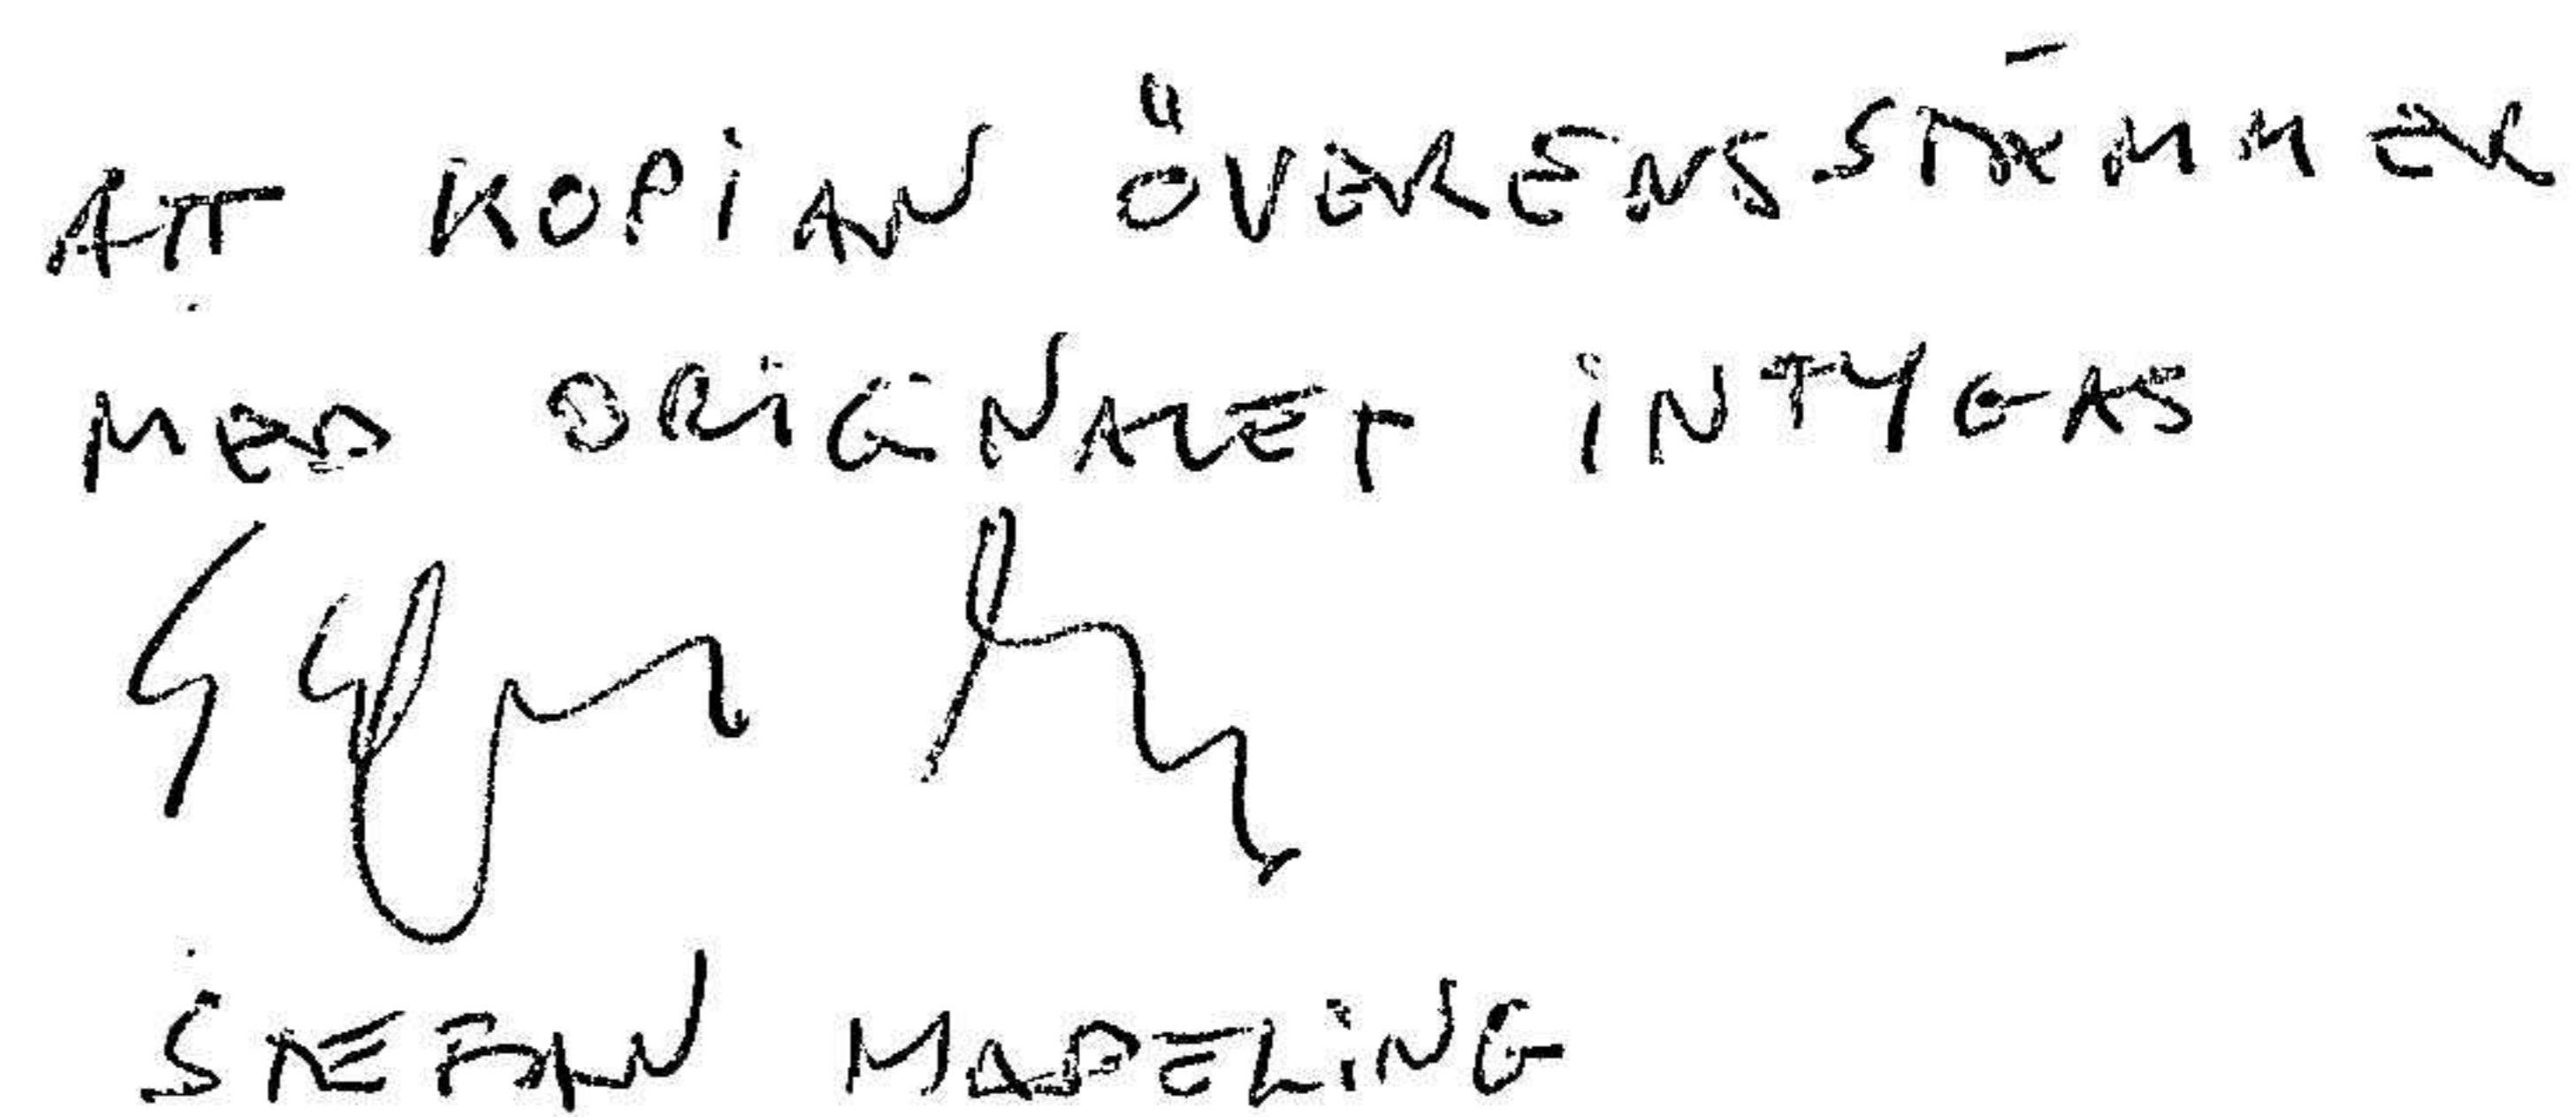 ATT KOPIAN ÖVERENSSTÄMMER
MED ORIGNALET INTYGAS
STEFAN MADELING